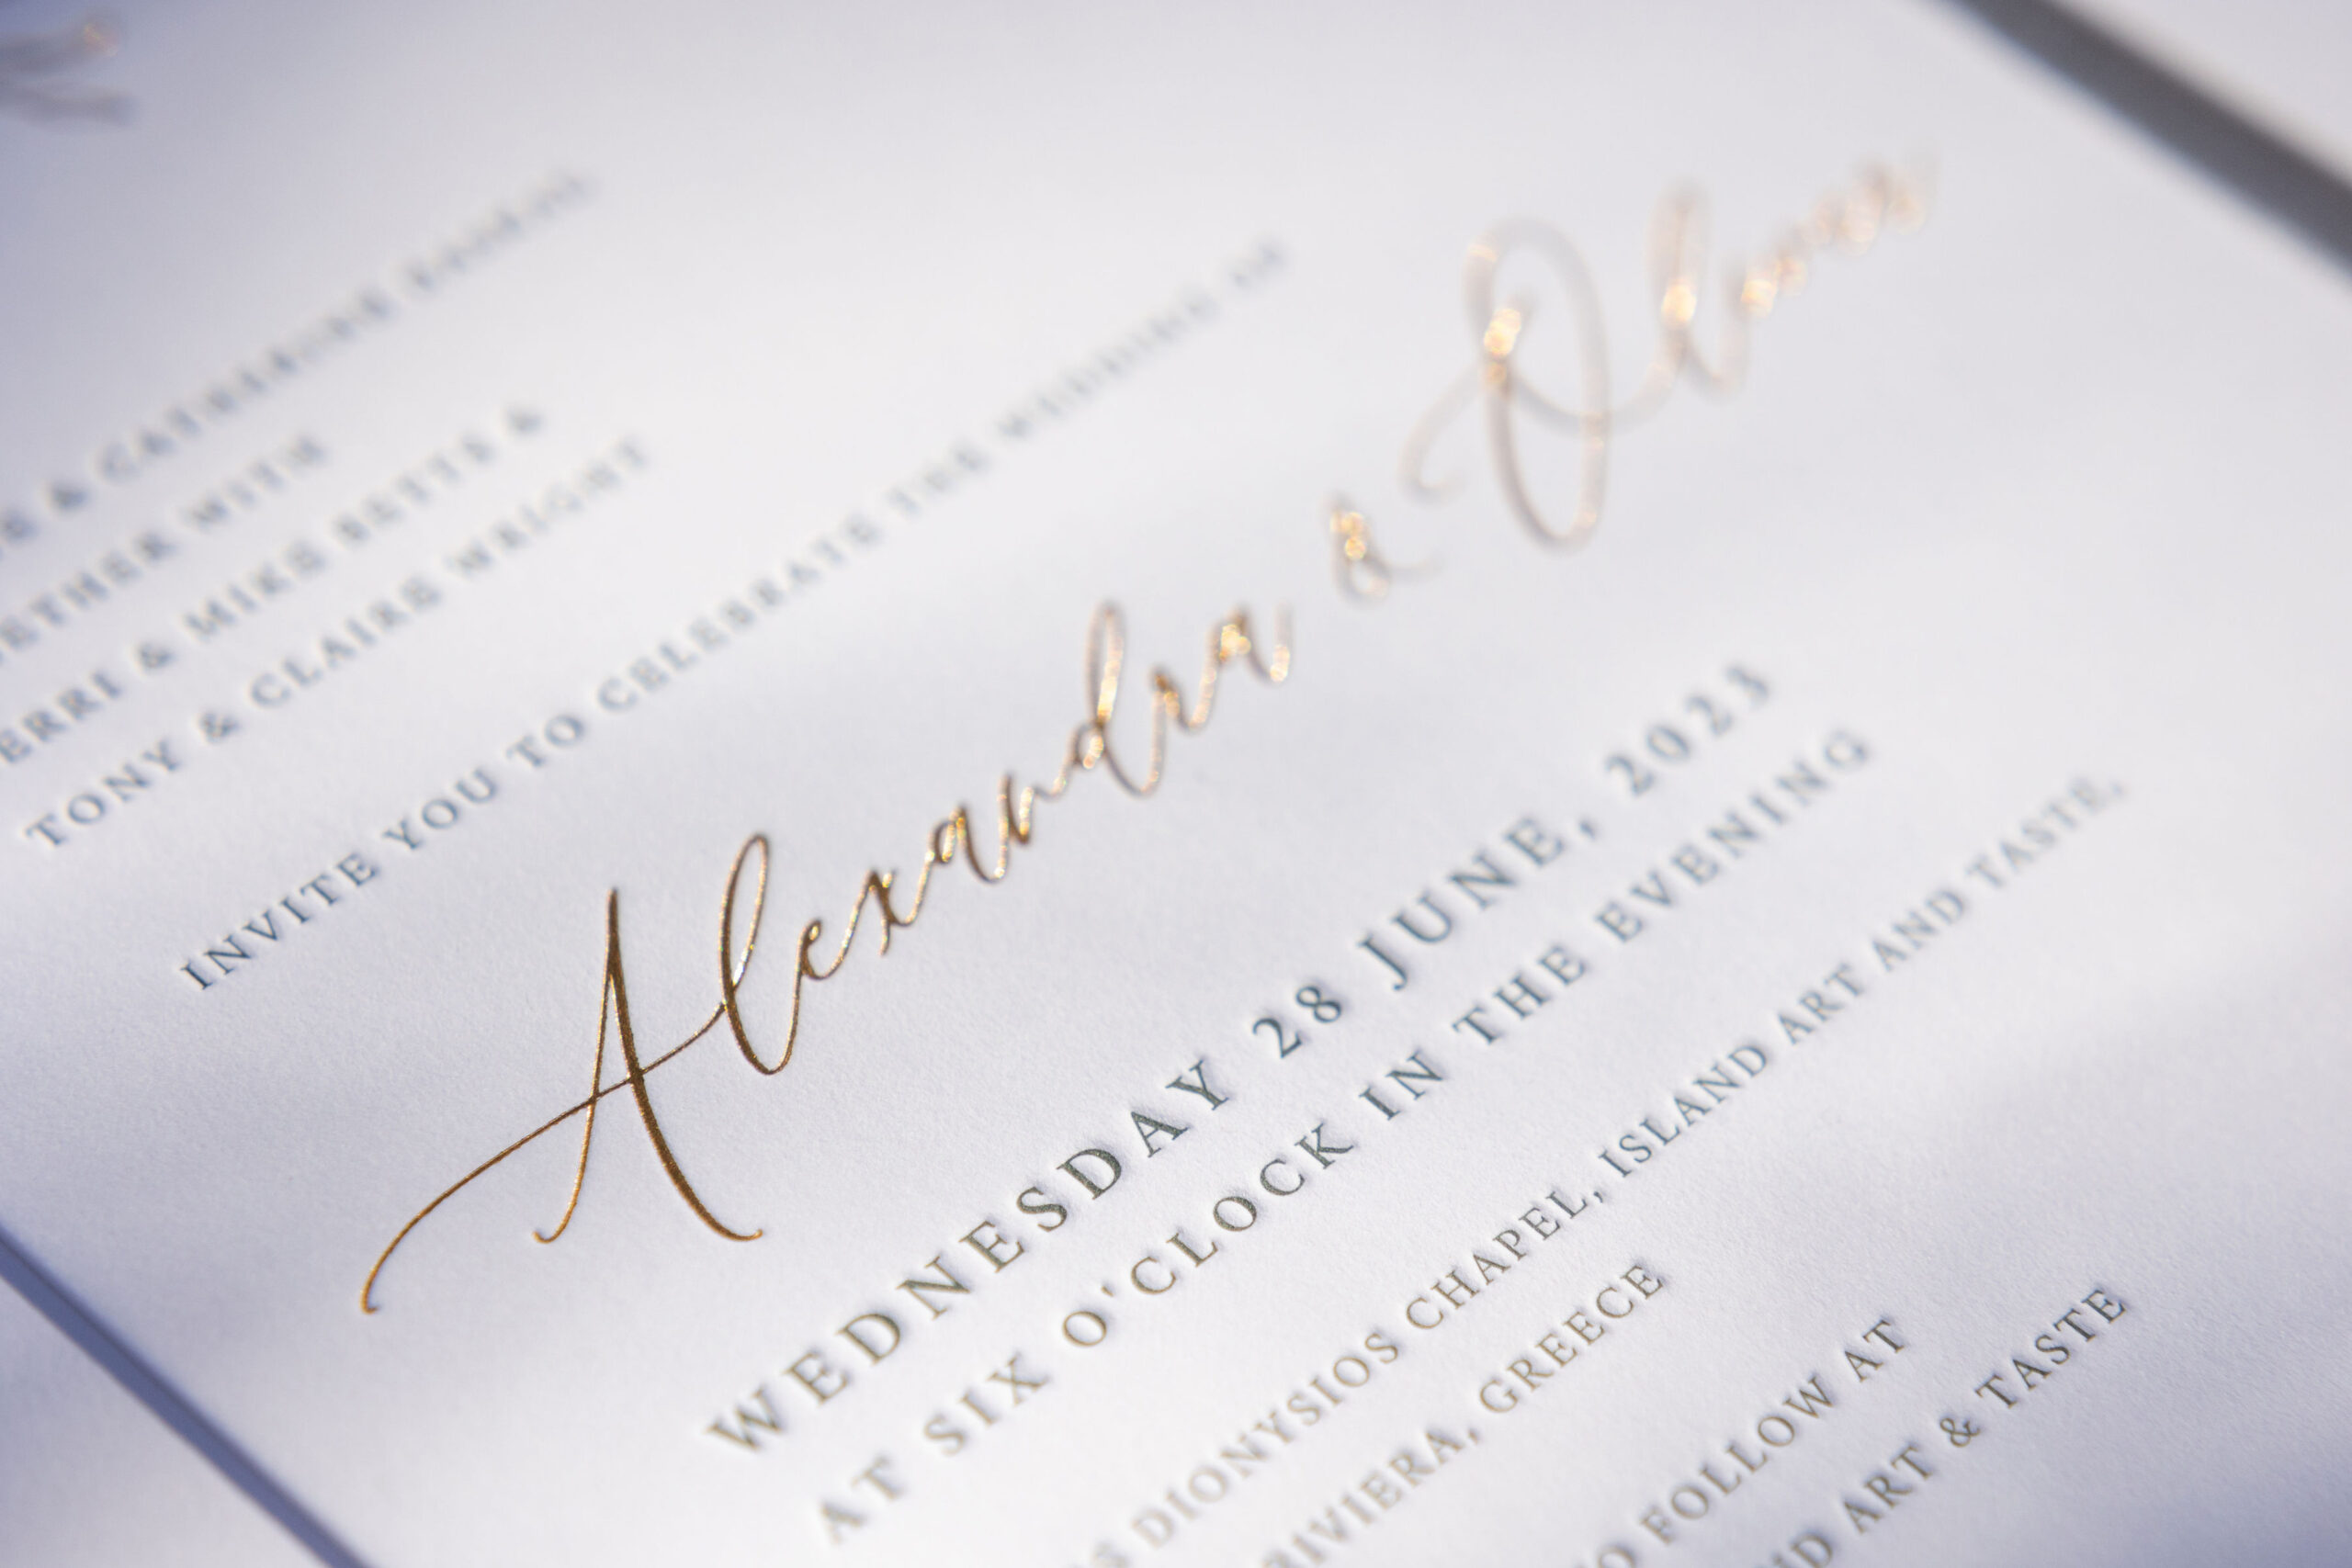 & CATHERINE
WITH
& MIKE BETTS &
TONY & CLAIRE WRIGHT
INVITE YOU TO CELEBRATE THE WEDDING OF
Alexandra & Oliver
WEDNESDAY 28 JUNE, 2023
AT SIX O'CLOCK IN THE EVENING
DIONYSIOS CHAPEL, ISLAND ART AND TASTE,
RIVIERA, GREECE
FOLLOW AT
ART & TASTE